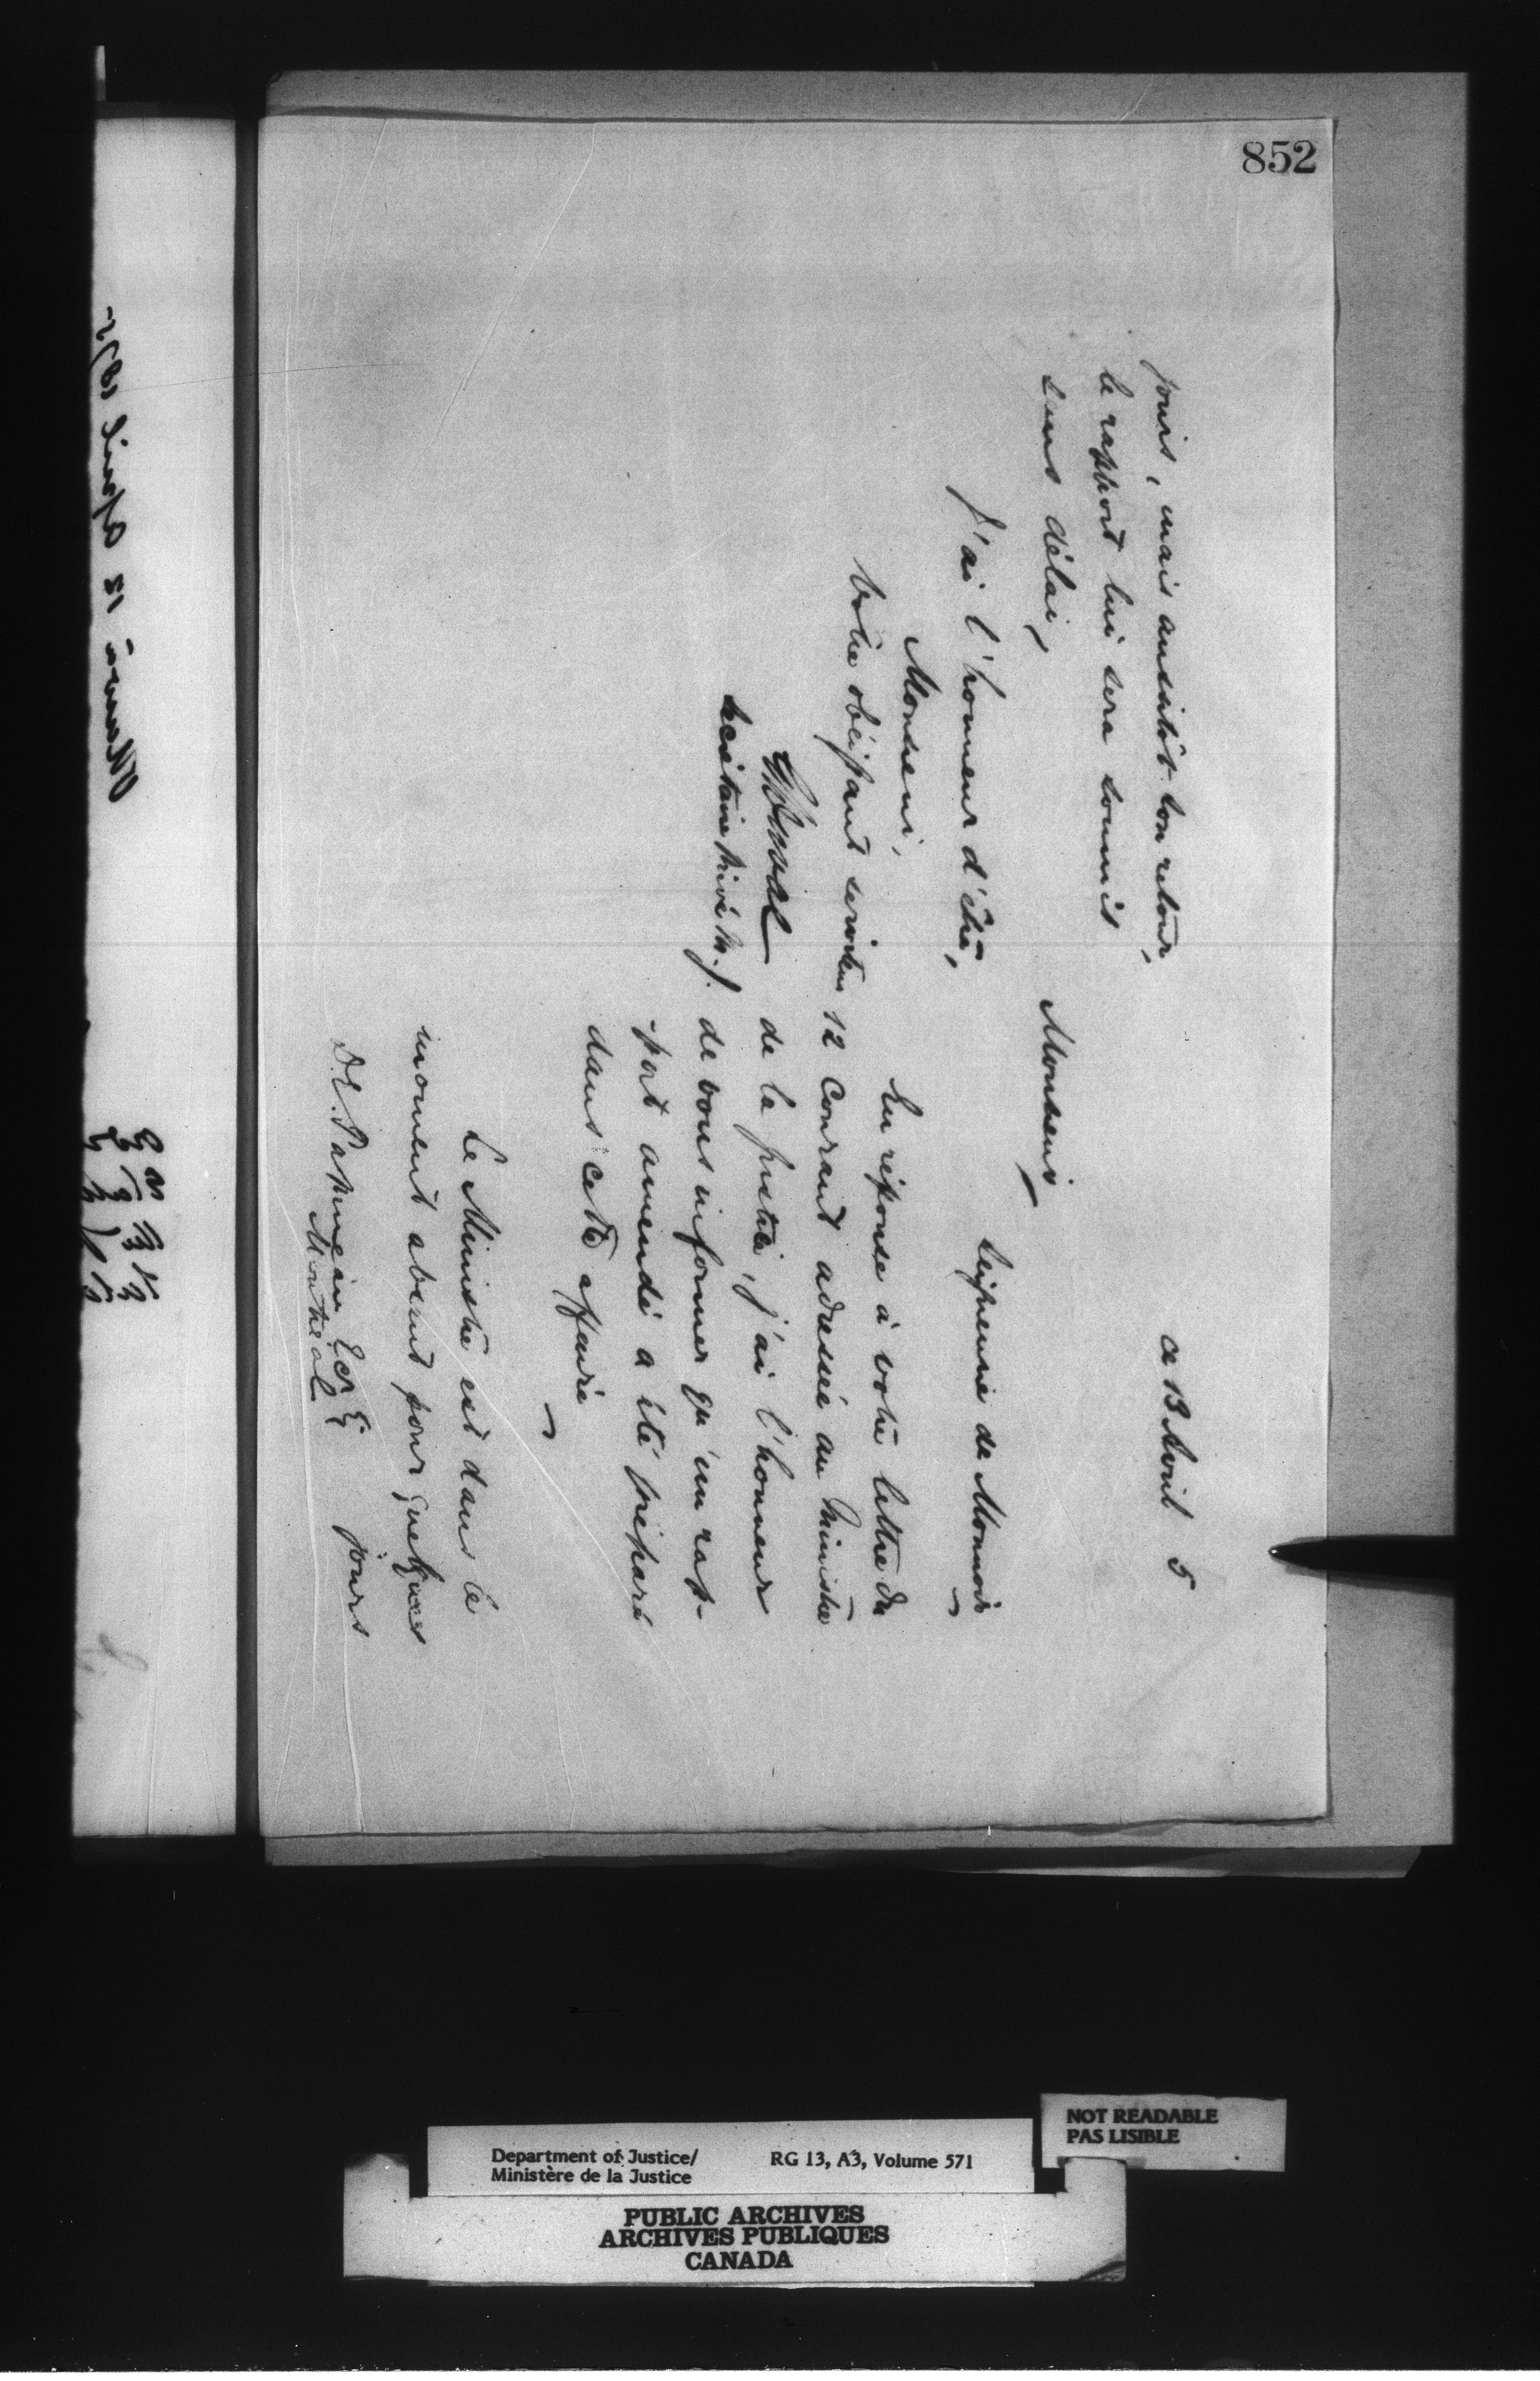 852
ce 13 Avril 5
Seigneurie de Monnoir
Monsieur
En réponse à votre lettre du
12 Courant adressée au Ministre
de la justice, j'ai l'honneur
de vous informer qu'un rap-
-port amendé a été préparé
dans cette affaire
Le Ministre est dans le
moment absent pour quelques
jours
D.E. Papineau Ecr
Montreal
jours, mais aussitôt son retour,
le rapport lui sera soumis
sans délai,
J'ai l'honneur d'être,
Monsieur,
Votre obéissant serviteur
Secrétaire Privé M.J.
Ottawa 12 April 1875
NOT READABLE
PAS LISIBLE
Department of Justice/
Ministère de la Justice
RG 13, A3, Volume 571
PUBLIC ARCHIVES
ARCHIVES PUBLIQUES
CANADA